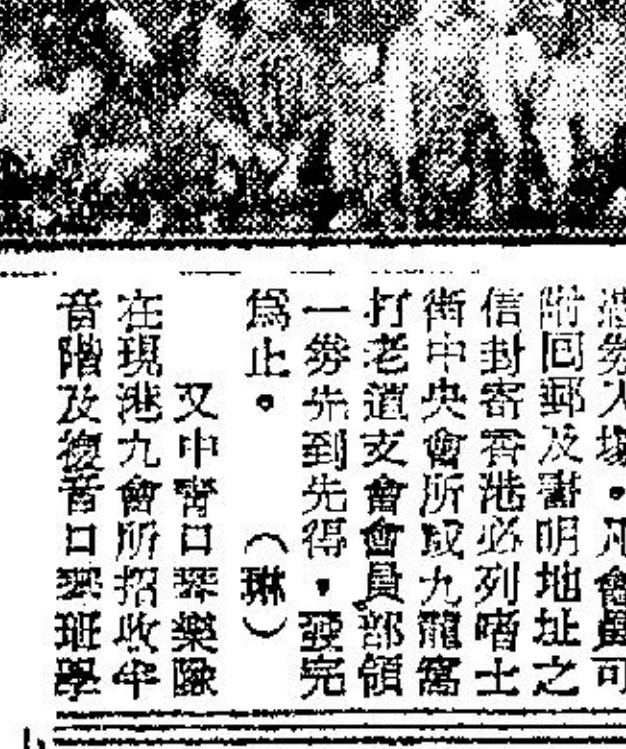 憑券入場。凡會員可
附回郵及書明地址之
信封寄香港必列啫士
街中央會所或九龍窩
打老道支會會員部領
一券先到先得，發完
爲止。（琳）
又中靑口琴樂隊
在現港九會所招收半
音階及複音口琴班學